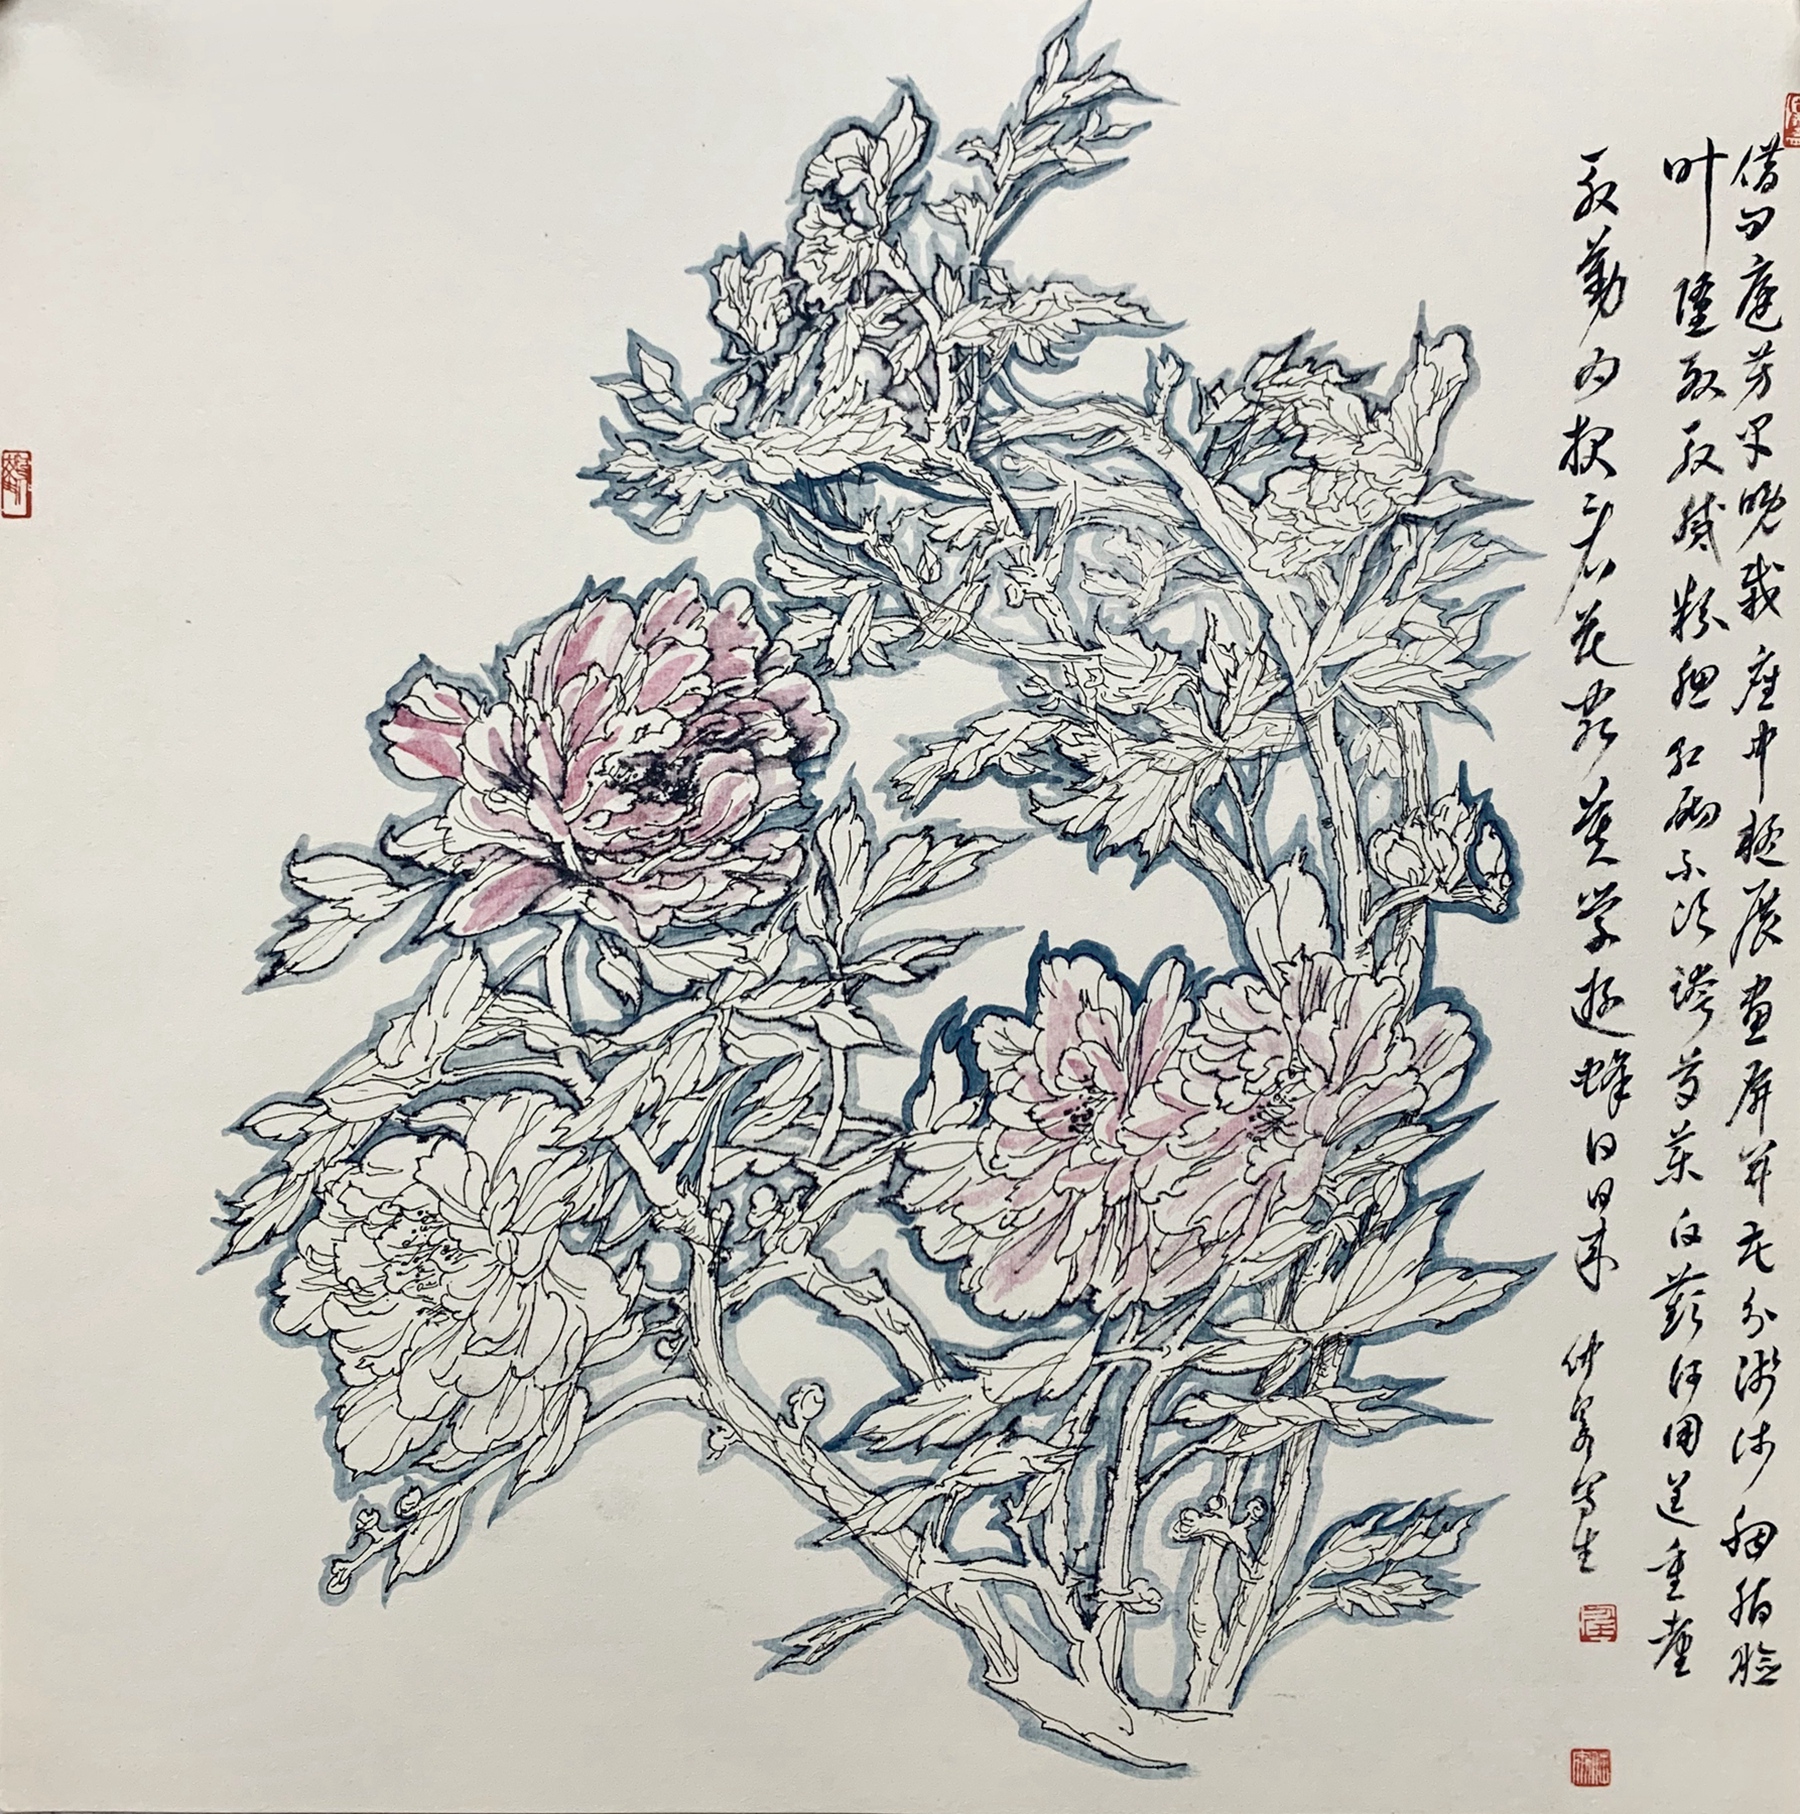 借问庭芳早晚栽座中疑展画屏开花分浅浅胭脂脸
叶堕殷殷腻粉腮红砌不须夸芍药白蘋何用逞重台
殷勤为报看花客莫学游蜂日日来 仲写生